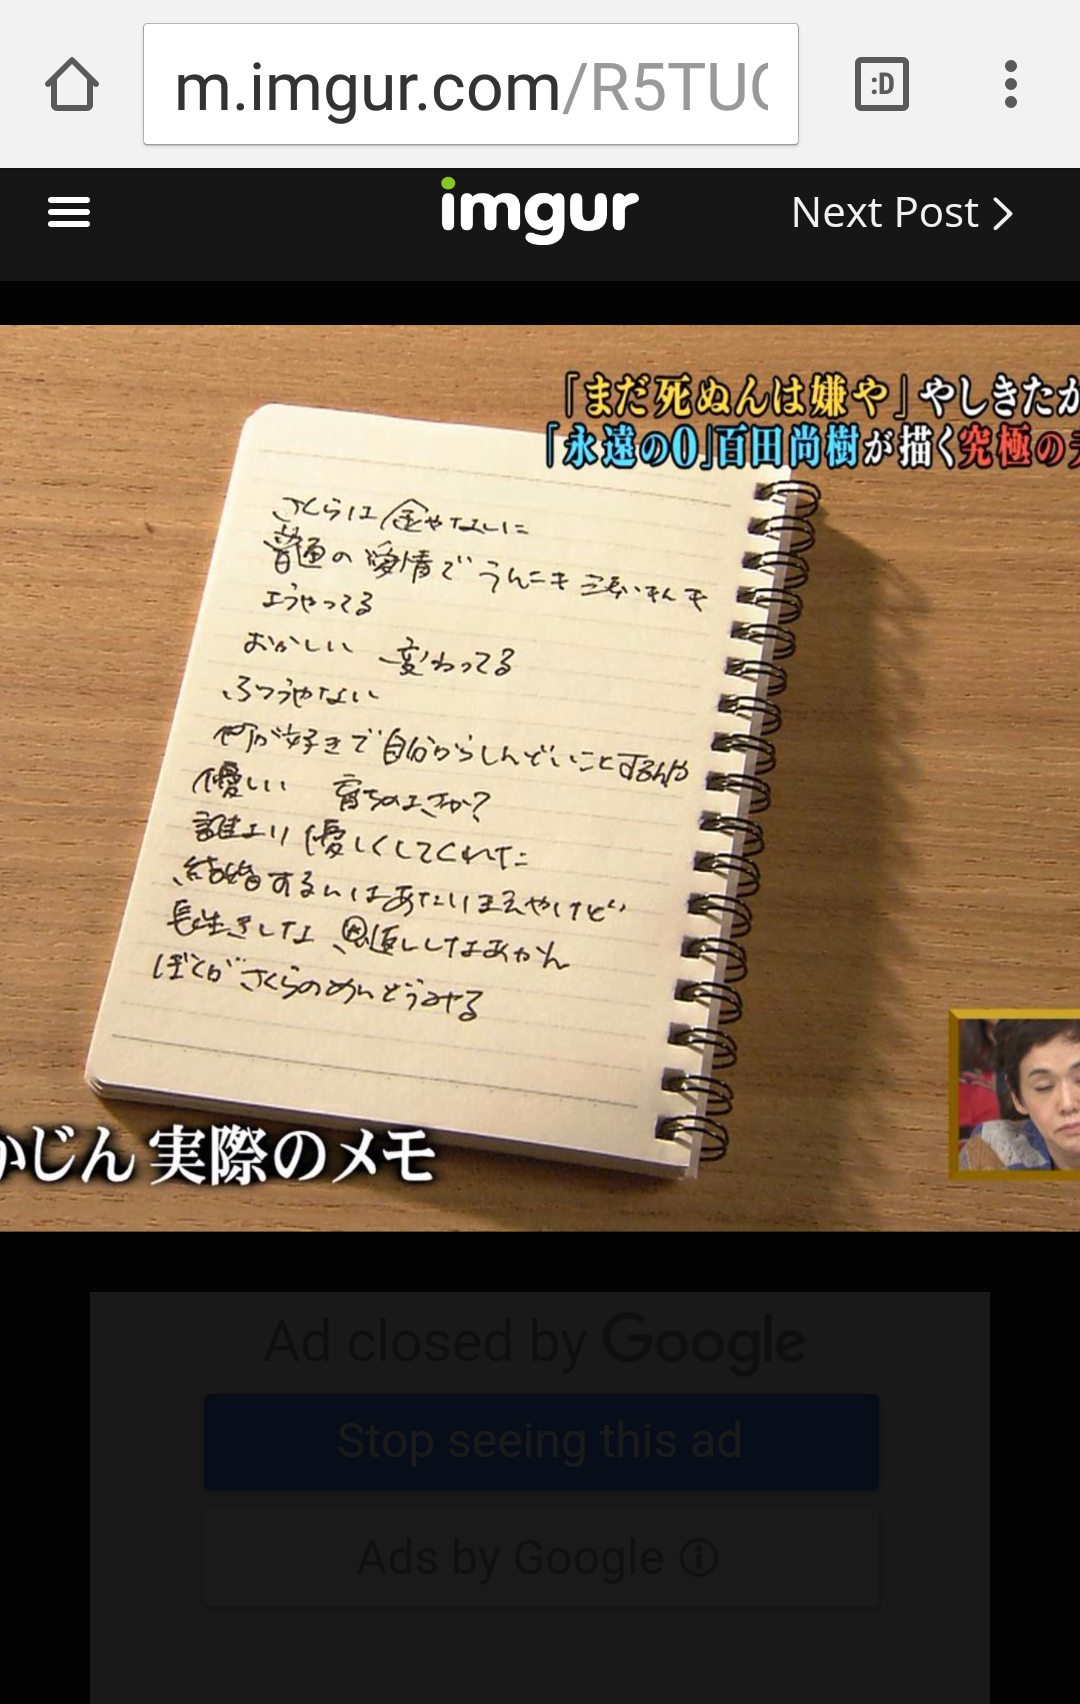 m.imgur.com/R5TU
:D
imgur
Next Post
「まだ死ぬんは嫌や」やしきたか
「永遠の0」百田尚樹が描く究極の
さくらは金やなしに
普通の愛情でうんこも
ようやってる
おかしい 変わってる
ふつうやない
何が好きで自分からしんどいことするんや
優しい 育ちのよさか?
誰より優しくしてくれた
結婚するんはあたりまえやけど
長生きしな 恩返ししなあかん
ぼくがさくらのめんどうみる
かじん 実際のメモ
Ad closed by Google
Stop seeing this ad
Ads by Google